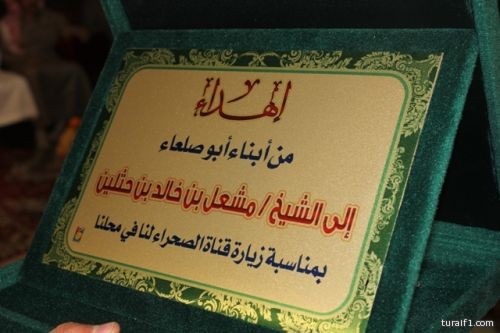 إهداء
من أبناء أبو صلعاء
إلى الشيخ / مشعل بن خالد بن حثلين
بمناسبة زيارة قناة الصحراء لنا في محلنا
turaif1.com